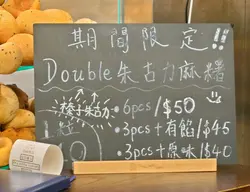 期間限定!!
Double朱古力麻糬
榛子朱古力
• 6pcs / $50
• 3pcs + 有餡 / $45
• 3pcs + 原味 / $40